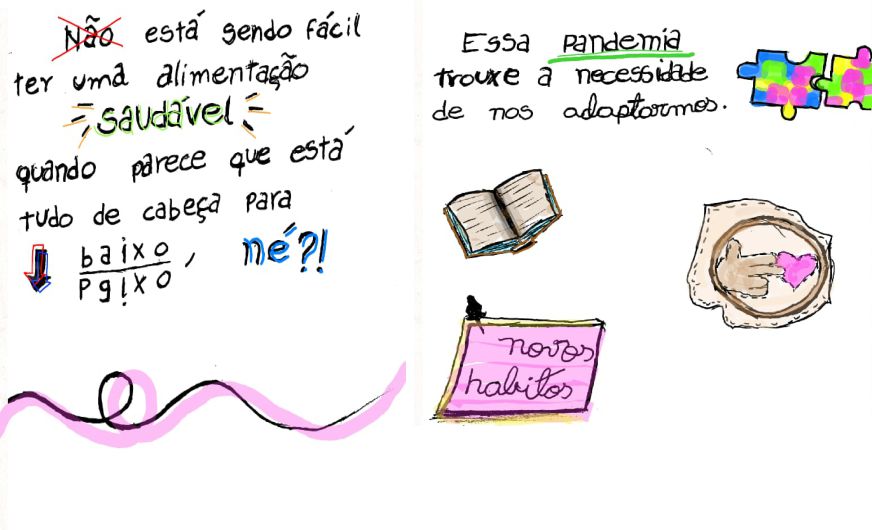 Não está sendo fácil
ter uma alimentação
saudável
quando parece que está
tudo de cabeça para
baixo, né?!
Essa pandemia
trouxe a necessidade
de nos adaptarmos.
novos
habitos